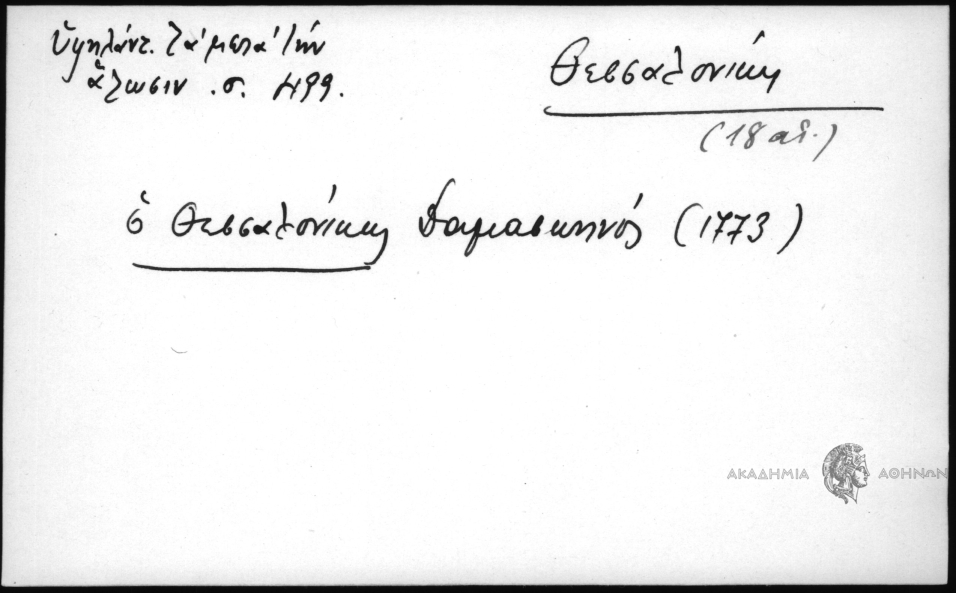 Ὑψηλάντ. Τὰ μετὰ τὴν
ἅλωσιν .σ. 499.
Θεσσαλονίκη
(18 αἰ.)
ὁ Θεσσαλονίκης Δαμασκηνός (1773)
ΑΚΑΔΗΜΙΑ ΑΘΗΝΩΝ